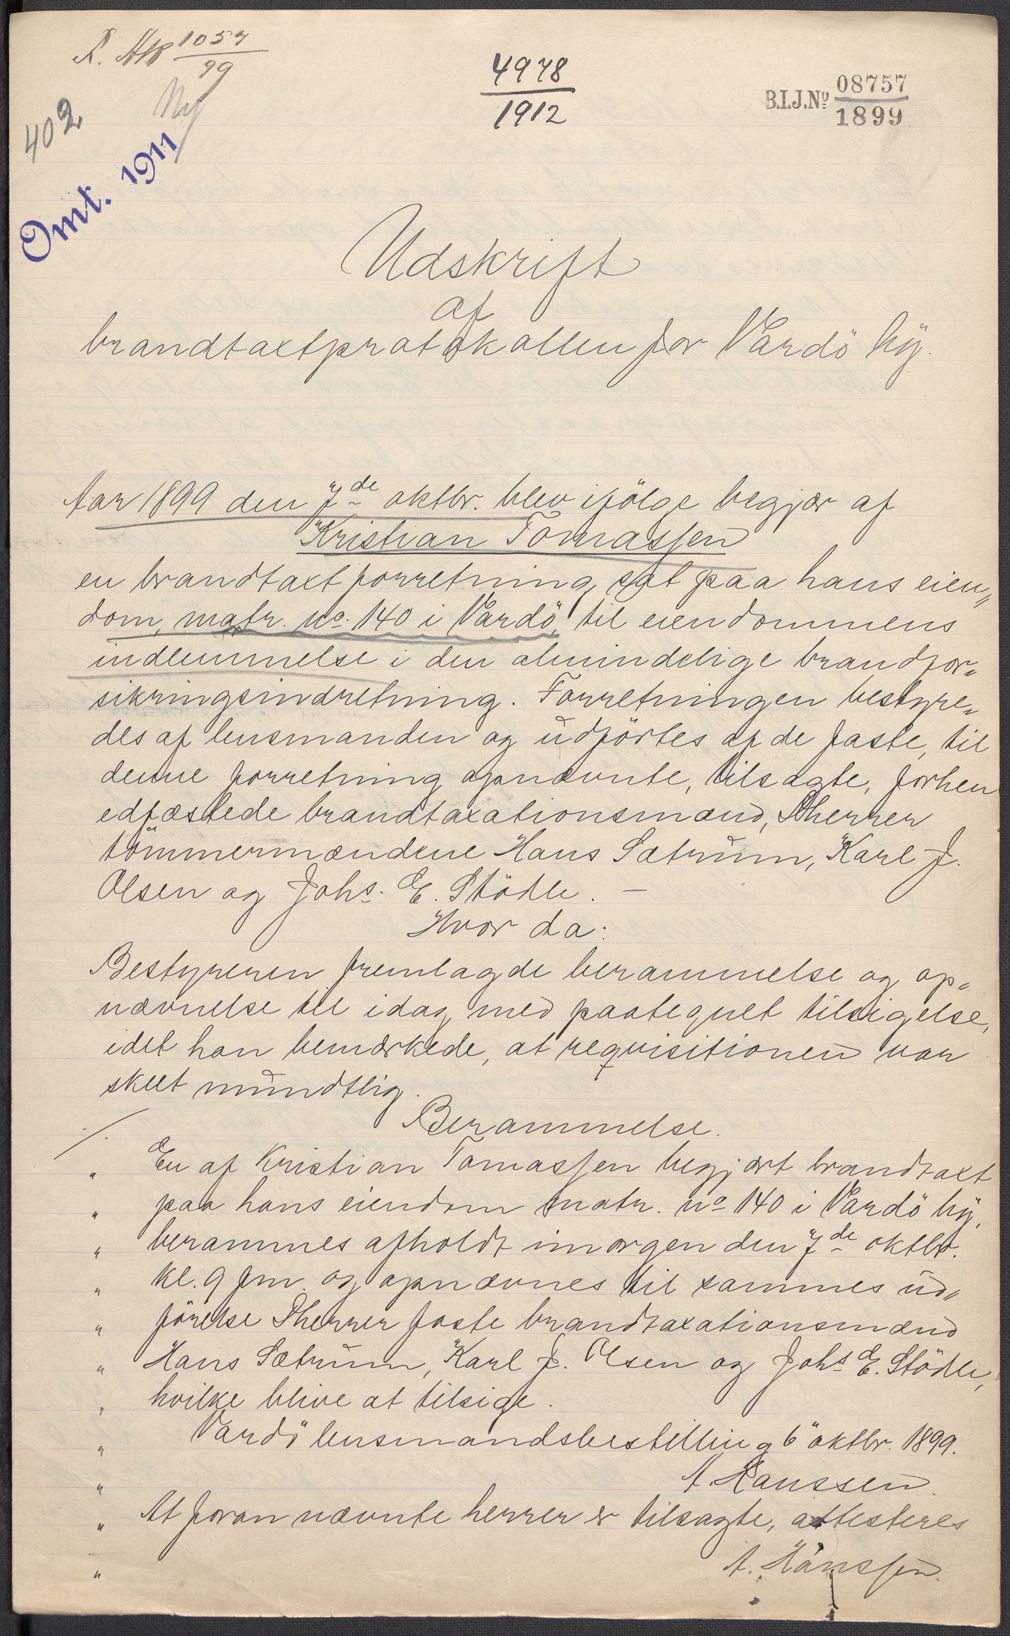 1057
99
Ny
402
Omt. 1911
4978
1912
B.I.J.Nº 08757
1899
Udskrift
af
brandtaxtprotokollen for Vardö by.
Aar 1899 den 7de oktbr. blev ifölge begjær af
Kristian Tomassen
en brandtaxtforretning sat paa hans eien„
dom, matr. no. 140 i Vardö, til eiendommens
indlemmelse i den almindelige brandfor„
sikringsindretning. Forretningen bestyre„
des af lensmanden og udförtes af de faste, til
denne forretning opnævnte, tilsagte, forhen
edfæstede brandtaxationsmænd, Dherrer
tömmermændene Hans Sætrum, Karl J.
Olsen og Johs. E. Stödle. —
Hvor da:
Bestyreren fremlagde berammelse og op„
nævnelse til idag med paategnet tilsigelse,
idet han bemærkede, at reqvisitionen var
skeet mundtlig.
Berammelse.
./.
„ En af Kristian Tomassen begjært brandtaxt
„ paa hans eiendom matr. no 140 i Vardö by,
„ berammes afholdt imorgen den 7de oktbr.
„ kl. 9 fm. og opnævnes til sammes ud„
„ förelse Dherrer faste brandtaxationsmænd
„ Hans Sætrum, Karl J. Olsen og Johs E. Stödle,
„ hvilke blive at tilsige.
„ Vardö lensmandsbestilling 6 oktbr. 1899.
„ A. Hanssen.
„ At foran nævnte herrer er tilsagte, attesteres
„ A. Hanssen.